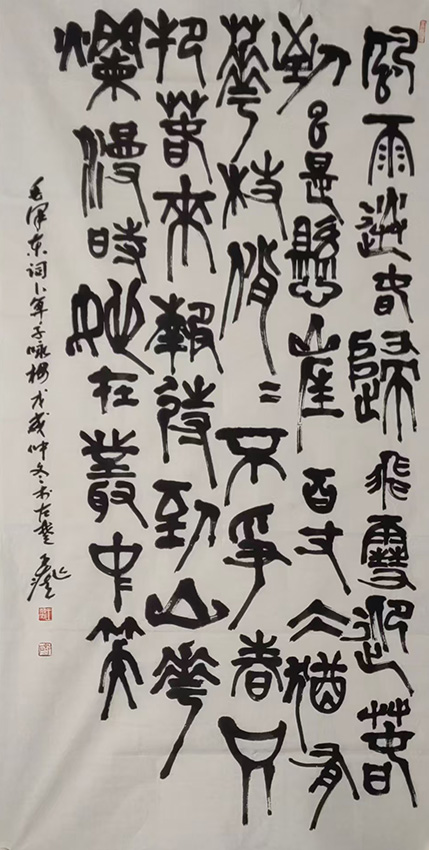 風雨送春歸飛雪迎春
到已是懸崖百丈冰猶有
華枝俏〻不爭春只
把春來報待到山華
爛漫時她在叢中笑
毛澤东词卜算子咏梅戊戌仲冬於古楚